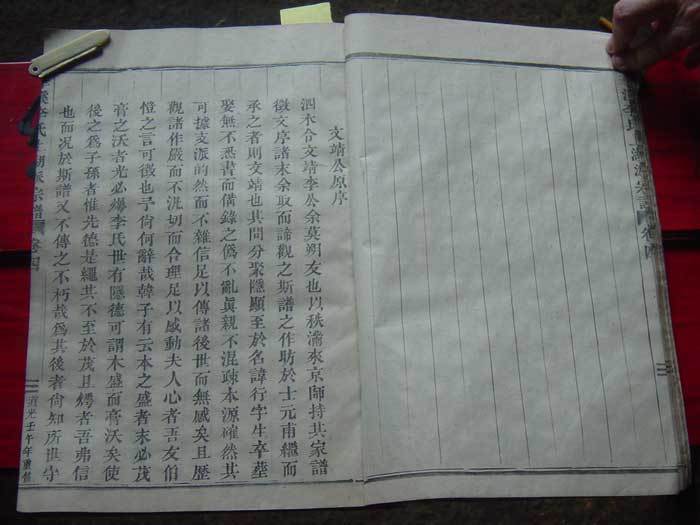 文靖公原序
泗水合文靖李公余莫朔友也以秩滿來京師持其家譜
徵文序諸末余取而諦觀之斯譜之作昉於士元南繼而
承之者則文靖也其間分聚隱顯至於名諱行字生卒塟
娶無不悉書而備錄之僞不亂眞親不混疎本源確然其
可據支派的然而不雜信足以傳諸後世而無感矣且歷
觀諸作嚴而不泛切而合理足以感動夫人心者吾友伯
愷之言可徵也予何何辭哉韓子有云本之盛者末必茂
膏之沃者光必燁李氏世有隱德可謂木盛而膏沃矣使
後之爲子孫者惟先德是繩其不至於茂且燁者吾弗信
也而况於斯譜又不傳之不朽哉爲其後者尙知所世守
李氏
宗譜
卷四
道光壬午年重修
李氏
卷四